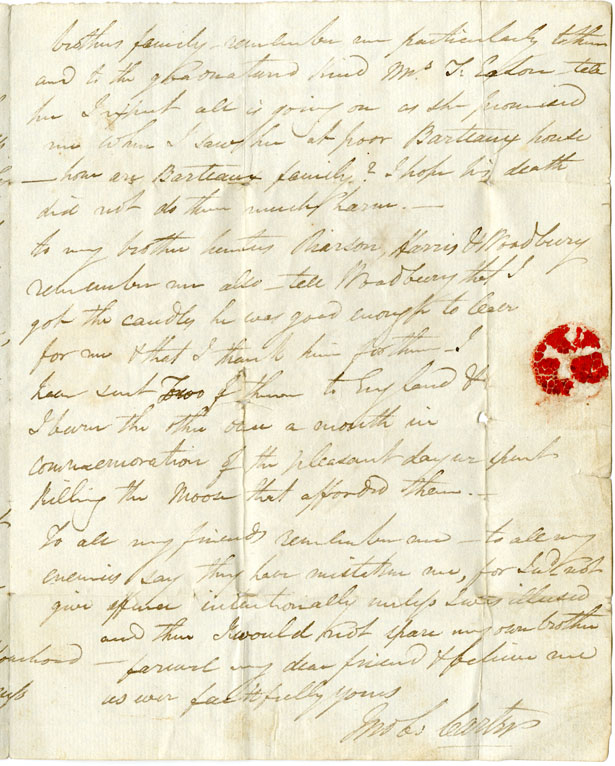 brothers family – remember me particularly to them
and to the good natured kind Mrs T. Eaton – tell
her I expect all is going on as she promised
me when I saw her at poor Barteaux house
– how are Barteaux family? I hope his death
did not do them much harm. –
To my brother hunters Pearson, Harris & Woodbury
remember me also – tell Woodbury that I
got the candles he was good enough to leave
for me & that I thank him for them – I
have sent Two of them to England &
I burn the other once a month in
commemoration of the pleasant day we spent
killing the Moose that afforded them. –
To all my friends remember me – to all my
enemies say they have mistaken me, for I did not
give offence intentionally unless I was illused
and then I would not spare my own brother
– farewel my dear friend & believe me
as ever faithfully yours
Carter